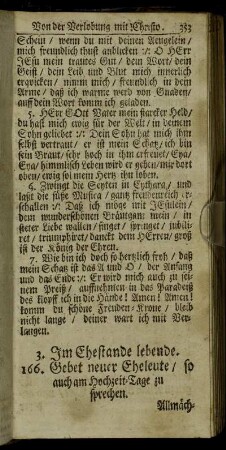 Von der Verlobung mit Christo. 383
Schein / wenn du mit deinen Aeugelein /
mich freundlich thust anblicken :/: O HErr
JEsu mein trautes Gut / dein Wort / dein
Geist / dein Leib und Blut mich innerlich
erqvicken / nimm mich / freundlich in dein
Arme / daß ich warme werd von Gnaden /
auf dein Wort komm ich geladen.
5. HErr GOtt Vater mein starcker Held /
du hast mich ewig für der Welt / in deinem
Sohn geliebet :/: Dein Sohn hat mich ihm
selbst vertraut / er ist mein Schatz / ich bin
sein Braut / sehr hoch in ihm erfreuet / Eya /
Eya / himmlisch Leben wird er geben / mir dort
oben / ewig sol mein Hertz ihn loben.
6. Zwingt die Seyten in Cythara / und
laßt die süsse Musica / gantz freudenreich er-
schallen :/: Daß ich möge mit JEsulein /
dem wunderschönen Bräutgam mein / in
steter Liebe wallen / singet / springet / jubili-
ret / triumphiret / dancket dem HErren / groß
ist der König der Ehren.
7. Wie bin ich doch so hertzlich froh / daß
mein Schatz ist das A und O / der Anfang
und das Ende :/: Er wird mich auch zu sei-
nem Preiß / auffnehmen in das Paradeiß
des klopff ich in die Hände! Amen! Amen!
komm du schöne Freuden-Krone / bleib
nicht lange / deiner wart ich mit Ver-
langen.
3. Im Ehestande lebende.
166. Gebet neuer Eheleute / so
auch am Hochzeit-Tage zu
sprechen.
Allmäch-